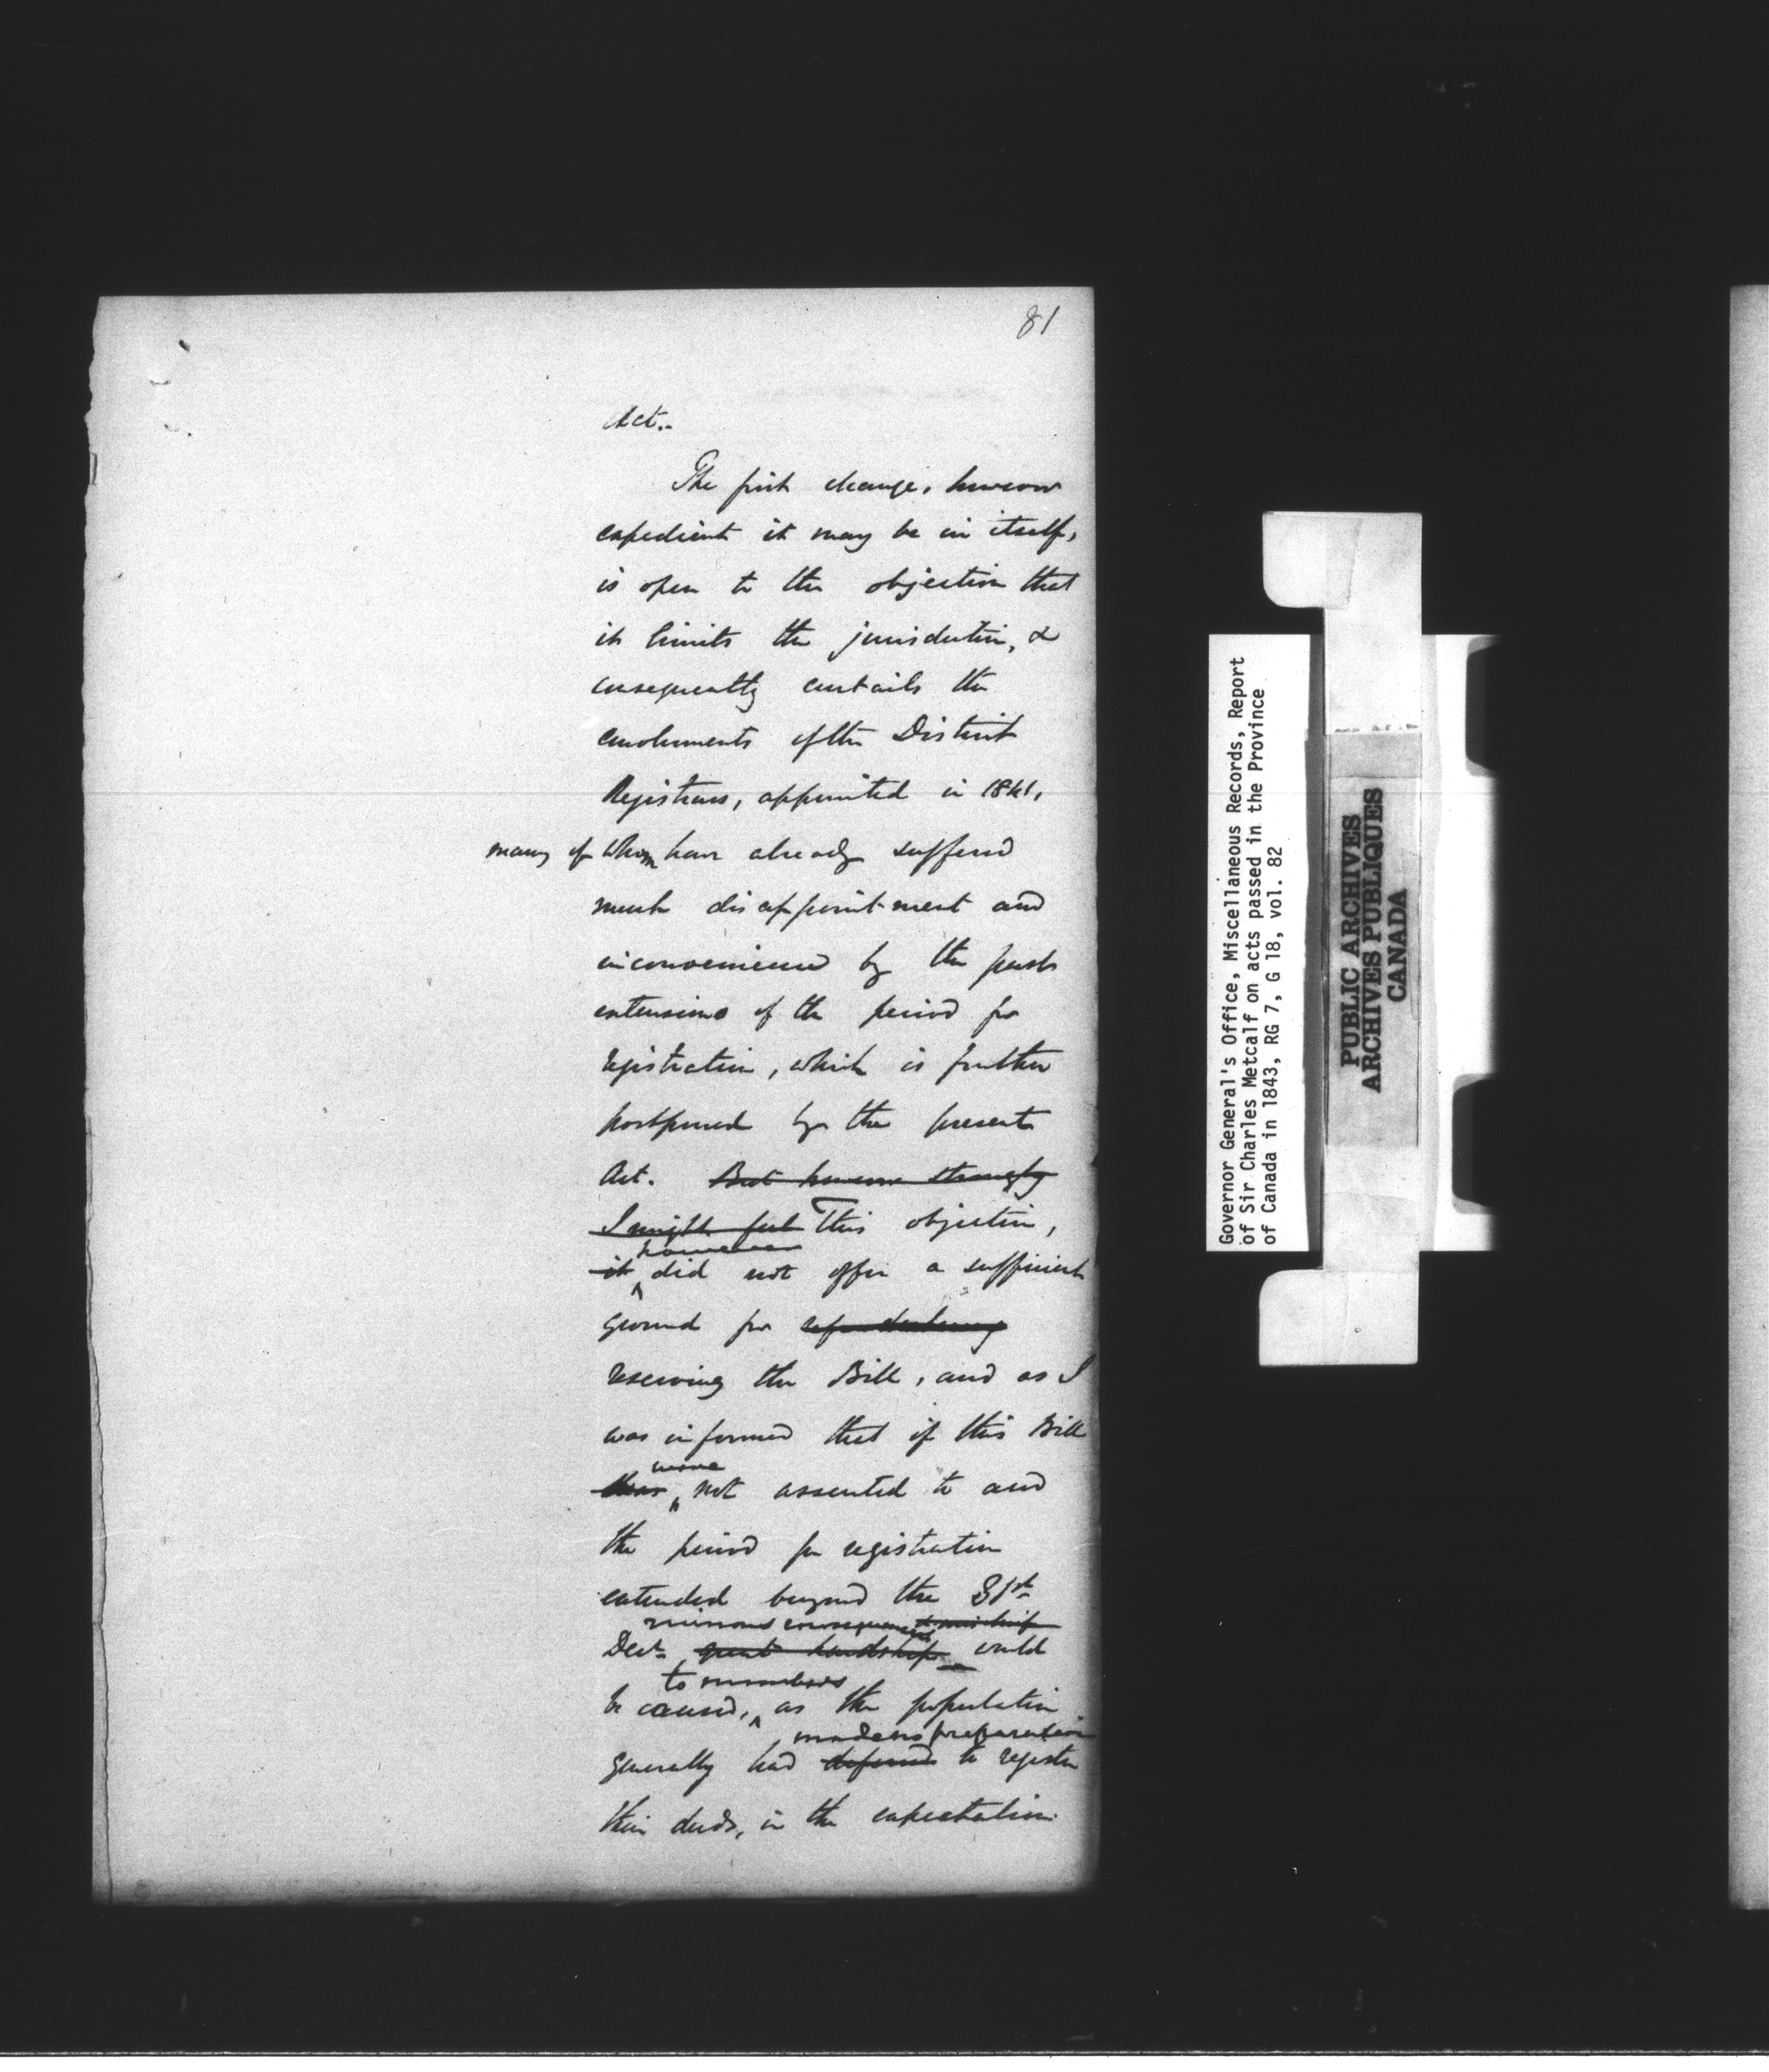 81
Act.
The first change, however
expedient it may be in itself,
is open to the objection that
it limits the jurisdiction, &
consequently curtails the
emoluments of the District
Registrars, appointed in 1841,
many of whom have already suffered
much disappointment and
inconvenience by the past
extensions of the period for
registration, which is further
postponed by the present
Act. But however strongly
I might feel This objection,
however
it did not offer a sufficient
ground for
reserving the Bill, and as I
was informed that if this Bill
were
was not assented to and
the period for registration
extended beyond the 31st
ruinous consequences mischief
Decr. great hardships would
to numbers
be caused, as the population
made no preparation
generally had deferred to register
their deeds, in the expectation
Governor General's Office, Miscellaneous Records, Report
of Sir Charles Metcalf on acts passed in the Province
of Canada in 1843, RG 7, G 18, vol. 82
PUBLIC ARCHIVES
ARCHIVES PUBLIQUES
CANADA